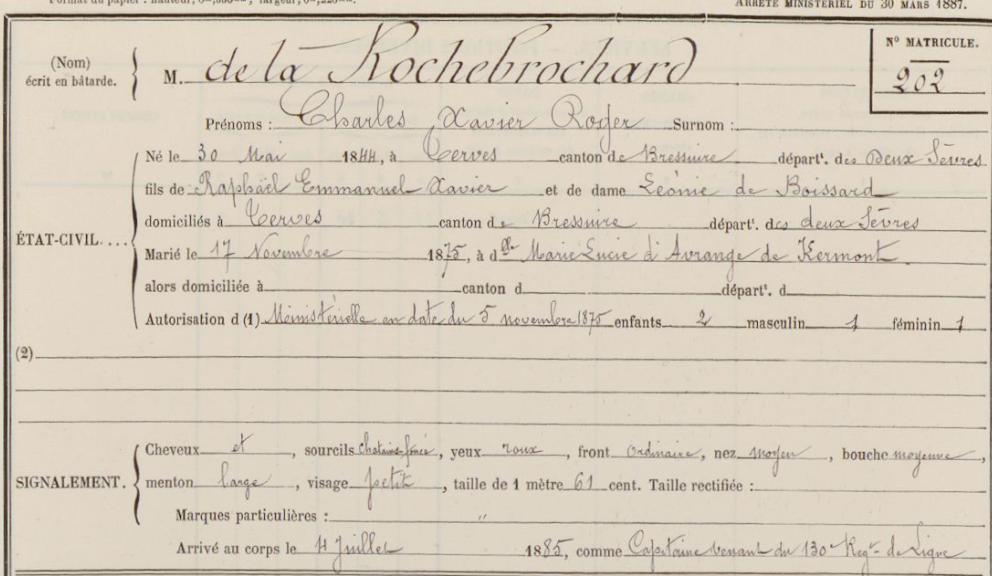 Format du papier : hauteur, 0m,330mm, largeur, 0m,220mm. ARRÊTÉ MINISTÉRIEL DU 30 MARS 1887.
(Nom) écrit en bâtarde. M. de la Rochebrochard
N° MATRICULE. 202
Prénoms : Charles Xavier Roger Surnom :
ÉTAT-CIVIL....
Né le 30 Mai 1844, à Terves canton de Bressuire départt. des Deux Sèvres
fils de Raphaël Emmanuel Xavier et de dame Léonie de Boissard
domiciliés à Terves canton de Bressuire départt. des deux Sèvres
Marié le 17 Novembre 1875, à dlle Marie Lucie d'Avrange de Kermont
alors domiciliée à canton d départt. d
Autorisation d (1) Ministérielle en date du 5 novembre 1875 enfants 2 masculin 1 féminin 1
(2)
SIGNALEMENT.
Cheveux et , sourcils chatains foncé, yeux roux , front ordinaire, nez moyen , bouche moyenne,
menton large , visage petit , taille de 1 mètre 61 cent. Taille rectifiée :
Marques particulières : "
Arrivé au corps le 4 Juillet 1885, comme Capitaine venant du 130e Regt de Ligne